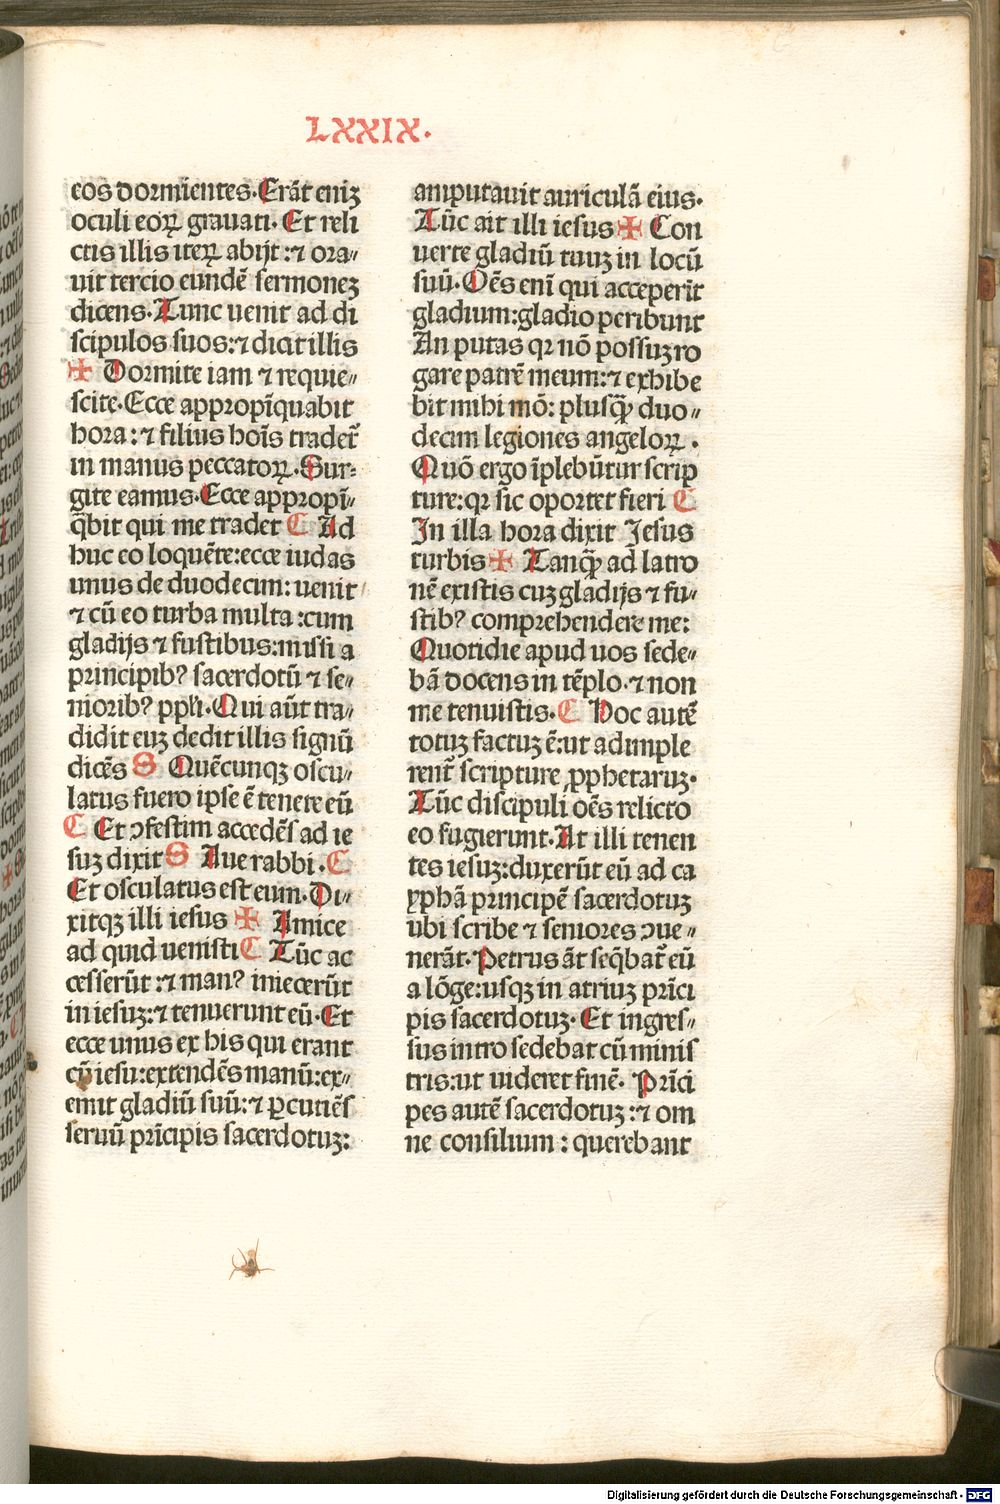 LXXIX.
eos dormiẽntes. Erãt eniʒ
oculi eoꝝ grauati. Et reli
ctis illis iteꝝ abijt: ⁊ ora⸗
uit tercio eundẽ sermoneʒ
dicens. Tunc uenit ad di
scipulos suos: ⁊ dicit illis
✠ Dormite iam ⁊ requie⸗
scite. Ecce appropĩquabit
hora: ⁊ filius hoĩs tradet̃
in manus peccatoꝝ. Sur⸗
gite eamus. Ecce appropĩ⸗
q̃bit qui me tradet C Ad
huc eo loquẽte: ecce iudas
unus de duodecim: uenit
⁊ cũ eo turba multa: cum
gladijs ⁊ fustibus: missi a
principib? sacerdotũ ⁊ se⸗
niorib? ppli. Qui aũt tra⸗
didit euʒ dedit illis signũ
dicẽs S Quẽcunqʒ oscu⸗
latus fuero ipse ẽ tenete eũ
C Et ɔfestim accedẽs ad ie
suʒ dixit S Aue rabbi. C
Et osculatus est eum. Di⸗
xitqʒ illi iesus ✠ Amice
ad quid uenisti C Tũc ac
cesserũt: ⁊ man? iniecerũt
in iesuʒ: ⁊ tenuerunt eũ. Et
ecce unus ex his qui erant
cũ iesu: extendẽs manũ: ex⸗
emit gladiũ suũ: ⁊ ꝑcutiẽs
seruũ prĩcipis sacerdotuʒ:
amputauit auriculã eius.
Tũc ait illi iesus ✠ Con
uerte gladiũ tuuʒ in locũ
suũ. Oẽs enĩ qui acceperĩt
gladium: gladio peribunt
An putas qr nõ possuʒ ro
gare patrẽ meum: ⁊ exhibe
bit mihi mõ: plusq̃ꝫ duo⸗
decim legiones angeloꝝ.
Quõ ergo ĩplebũtur scrip
ture: qr sic oportet fieri C
In illa hora dixit Jesus
turbis ✠ Tanq̃ꝫ ad latro
nẽ existis cuʒ gladijs ⁊ fu⸗
stib? comprehendere me:
Quotidie apud uos sede⸗
bã docens in tẽplo. ⁊ non
me tenuistis. C Hoc autẽ
totuʒ factuʒ ẽ: ut adimple
rent̃ scripture ꝓphetaruʒ.
Tũc discipuli oẽs relicto
eo fugierunt. At illi tenen
tes iesuʒ: duxerũt eũ ad ca
yphã principẽ sacerdotuʒ
ubi scribe ⁊ seniores ɔue⸗
nerãt. Petrus ãt seq̃bat̃ eũ
a lõge: usqʒ in atriuʒ prĩci
pis sacerdotuʒ. Et ingres⸗
sus intro sedebat cũ minis
tris: ut uideret finẽ. Prĩci
pes autẽ sacerdotuʒ: ⁊ om
ne consilium: querebant
Digitalisierung gefördert durch die Deutsche Forschungsgemeinschaft - DFG